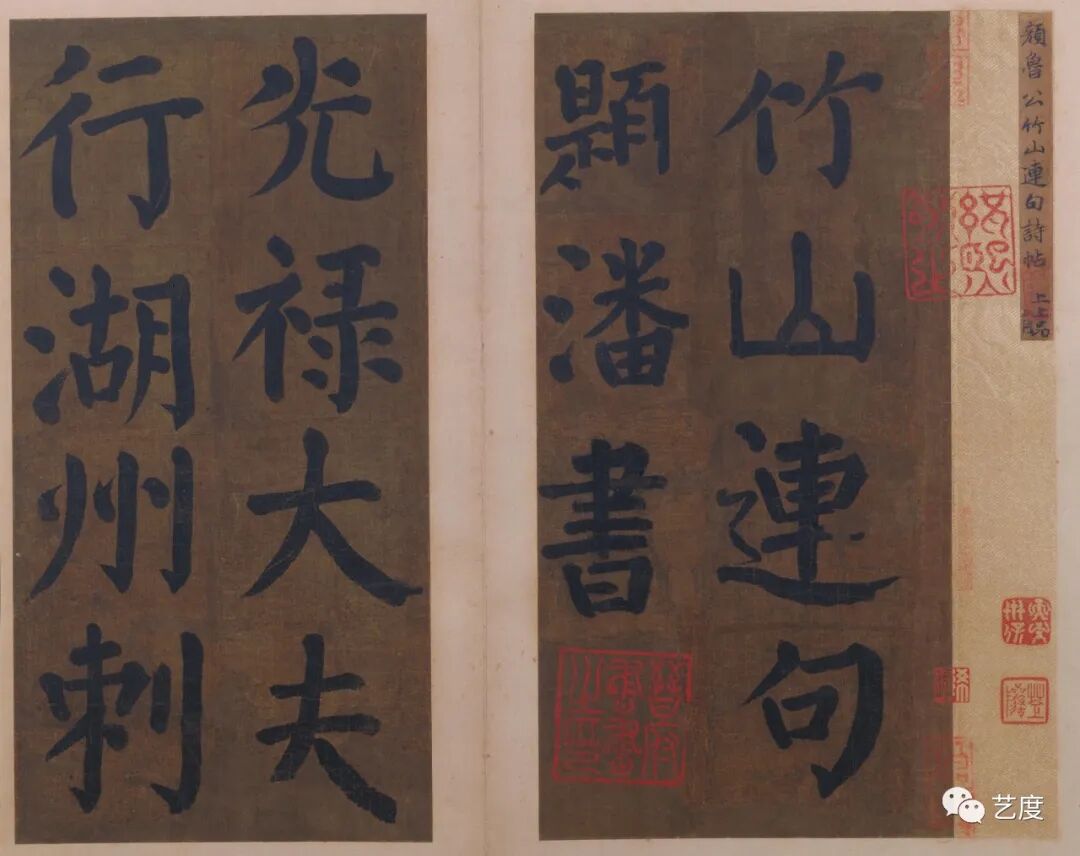 顔魯公竹山連句詩帖 上上品
竹山連句
題潘書
光禄大夫
行湖州刺
艺度